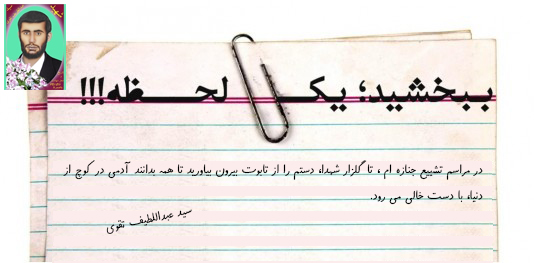 ببخشید، یک لحظه!!!
در مراسم تشییع جنازه ام ، تا گلزار شهدا، دستم را از تابوت بیرون بیاورید تا همه بدانند آدمی در کوچ از
دنیا، با دست خالی می رود.
سید عبداللطیف تقوی